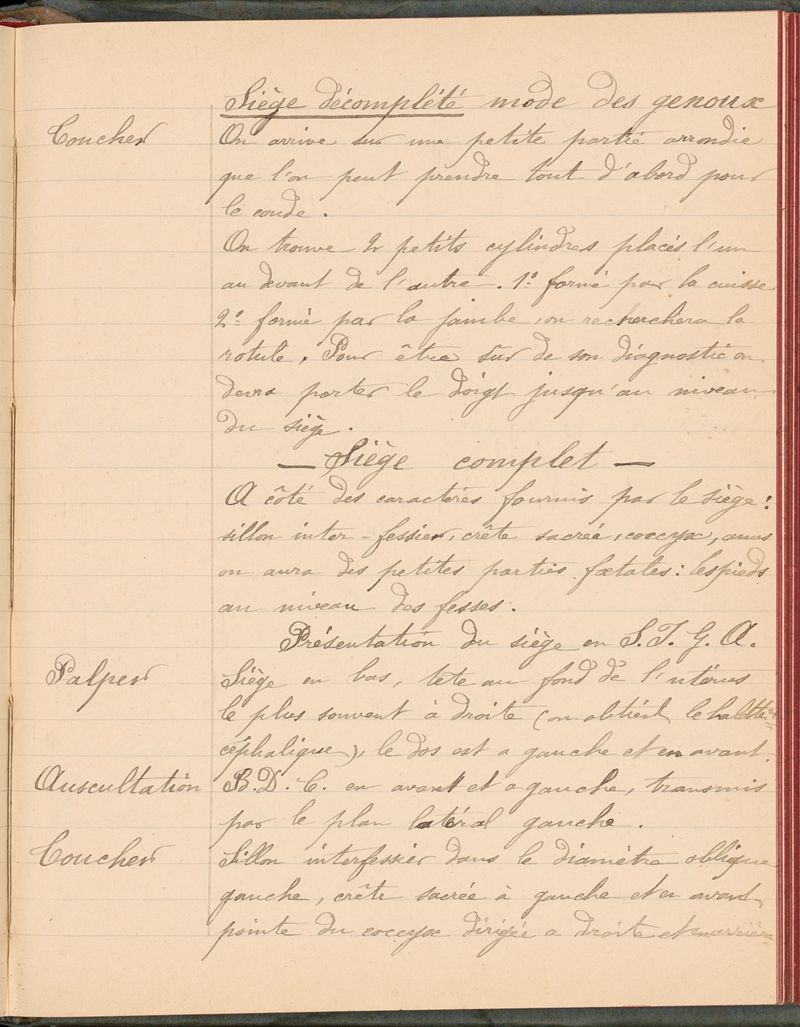 Siège décomplété mode des genoux
Toucher On arrive sur une petite partie arrondie
que l'on peut prendre tout d'abord pour
le coude.
On trouve 2 petits cylindres placés l'un
au devant de l'autre. 1º formé par la cuisse
2º formé par la jambe, on recherchera la
rotule. Pour être sûr de son diagnostic on
devra porter le doigt jusqu'au niveau
du siège.
— Siège complet —
A côté des caractères fournis par le siège :
sillon inter-fessier, crête sacrée, coccyx, anus
on aura des petites parties fœtales : les pieds
au niveau des fesses.
Présentation du siège en S.I.G.A.
Palper Siège en bas, tete au fond de l'utérus
le plus souvent à droite (on obtient le ballottemt
céphalique), le dos est a gauche et en avant.
Auscultation B.D.C. en avant et a gauche, transmis
par le plan latéral gauche.
Toucher Sillon interfessier dans le diamètre oblique
gauche, crête sacrée à gauche et en avant,
pointe du coccyx dirigée a droite et en arrière